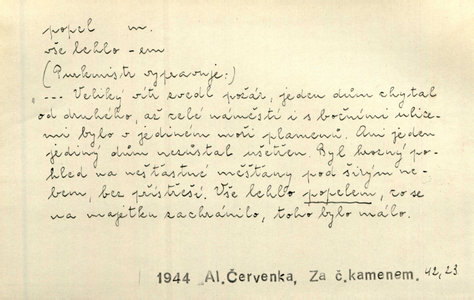 popel m.
vše lehlo -em
(Purkmistr vypravuje:)
--- Veliký vítr zvedl požár, jeden dům chytal
od druhého, až celé náměstí i s bočními ulice-
mi bylo v jediném moři plamenů. Ani jeden
jediný dům nezůstal ušetřen. Byl hrozný po-
hled na nešťastné měšťany pod širým ne-
bem, bez přístřeší. Vše lehlo popelem, co se
na majetku zachránilo, toho bylo málo.
1944 Al.Červenka, Za č.kamenem. 42,23.